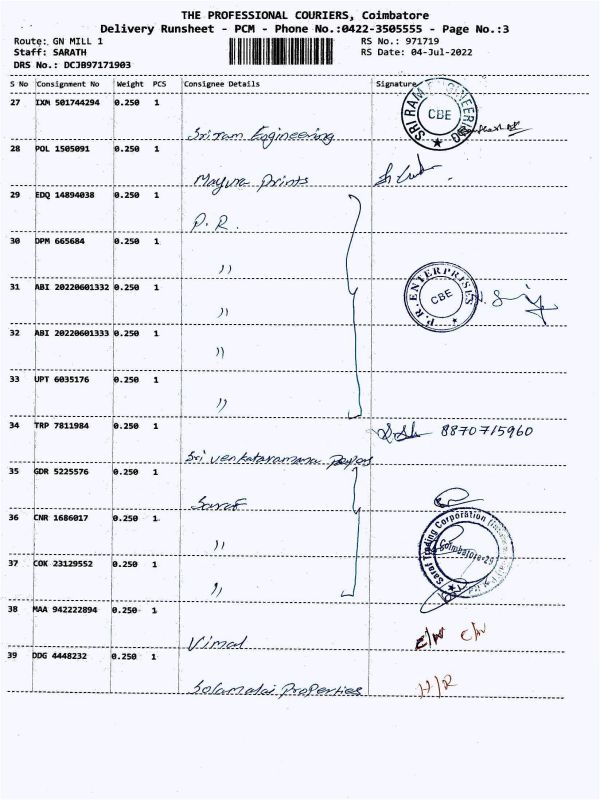 THE PROFESSIONAL COURIERS, Coimbatore
Delivery Runsheet - PCM - Phone No.:0422-3505555 - Page No.:3
Route: GN MILL 1 RS No.: 971719
Staff: SARATH RS Date: 04-Jul-2022
DRS No.: DCJB97171903
S No Consignment No Weight PCS Consignee Details Signature
27 IXM 501744294 0.250 1
SRI RAM ENGINEERING CBE
Sri ram Engineering
28 POL 1505091 0.250 1
Mayura Prints
29 EDQ 14894038 0.250 1
P. R.
30 DPM 665684 0.250 1
''
31 ABI 20220601332 0.250 1
P. R. ENTERPRISES CBE
''
32 ABI 20220601333 0.250 1
''
33 UPT 6035176 0.250 1
''
34 TRP 7811984 0.250 1
8870715960
Sri venkataramana
35 GDR 5225576 0.250 1
Saraf
36 CNR 1686017 0.250 1
Saraf Trading Corporation
Coimbatore-29
''
37 COK 23129552 0.250 1
''
38 MAA 942222894 0.250 1
Vimal C/N C/N
39 DDG 4448232 0.250 1
Solamalai Properties H/R